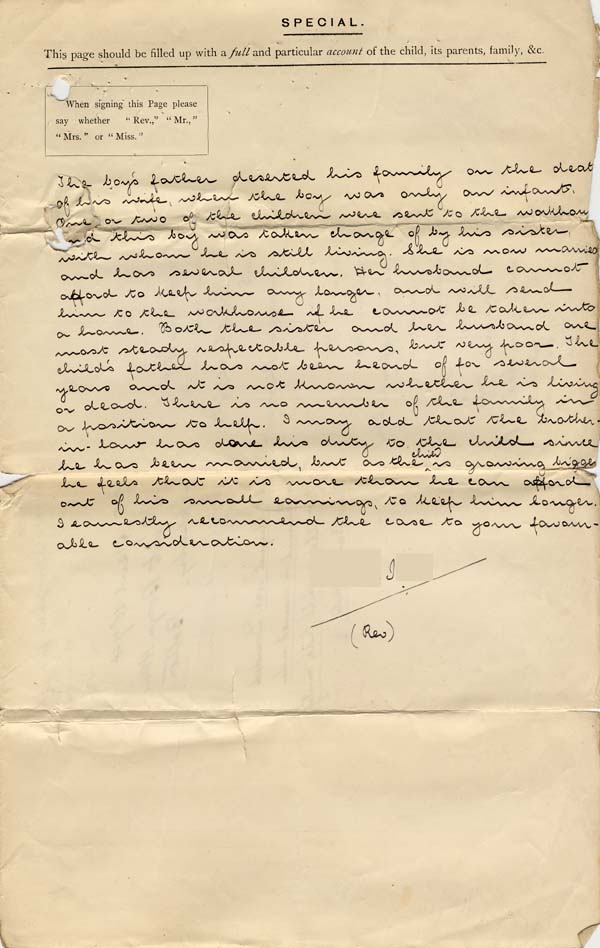 SPECIAL.
This page should be filled up with a full and particular account of the child, its parents, family, &c.
When signing this Page please
say whether "Rev.," "Mr.,"
"Mrs." or "Miss."
The boy's father deserted his family on the deat
of his wife, when the boy was only an infant.
One or two of the children were sent to the workhou
and this boy was taken charge of by his sister,
with whom he is still living. She is now married
and has several children. Her husband cannot
afford to keep him any longer, and will send
him to the workhouse if he cannot be taken into
a home. Both the sister and her husband are
most steady respectable persons, but very poor. The
child's father has not been heard of for several
years and it is not known whether he is living
or dead. There is no member of the family in
a position to help. I may add that the brother-
in-law has done his duty to the child since
he has been married, but as the child is growing bigge
he feels that it is more than he can afford
out of his small earnings, to keep him longer.
I earnestly recommend the case to your favour-
able consideration.
J.
(Rev)